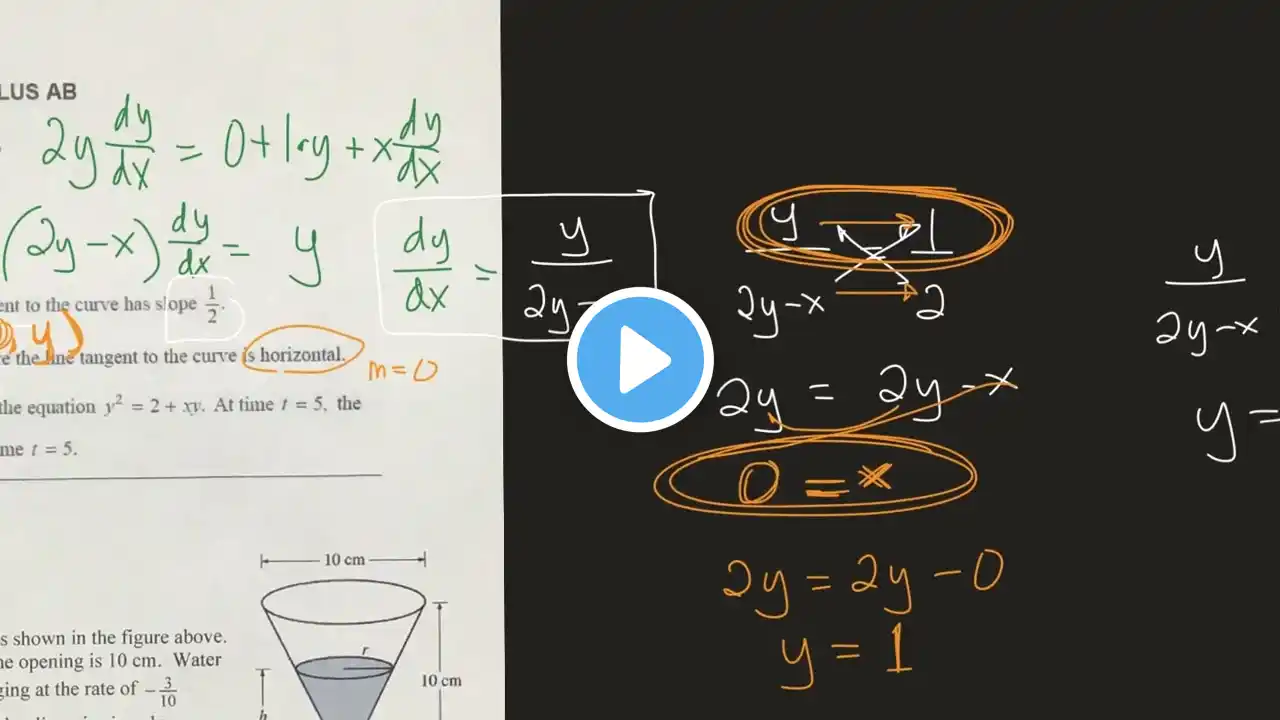 LUS AB
2y dy/dx = 0 + 1·y + x dy/dx
(2y - x) dy/dx = y
dy/dx = y/2y-
ent to the curve has slope 1/2.
, y)
e the line tangent to the curve is horizontal.
m = 0
the equation y² = 2 + xy. At time t = 5, the
me t = 5.
10 cm
s shown in the figure above.
ne opening is 10 cm. Water
ging at the rate of -3/10
r
10 cm
h
y/2y-x = 1/2
2y = 2y - x
0 = x
2y = 2y - 0
y = 1
y/2y-x
y =